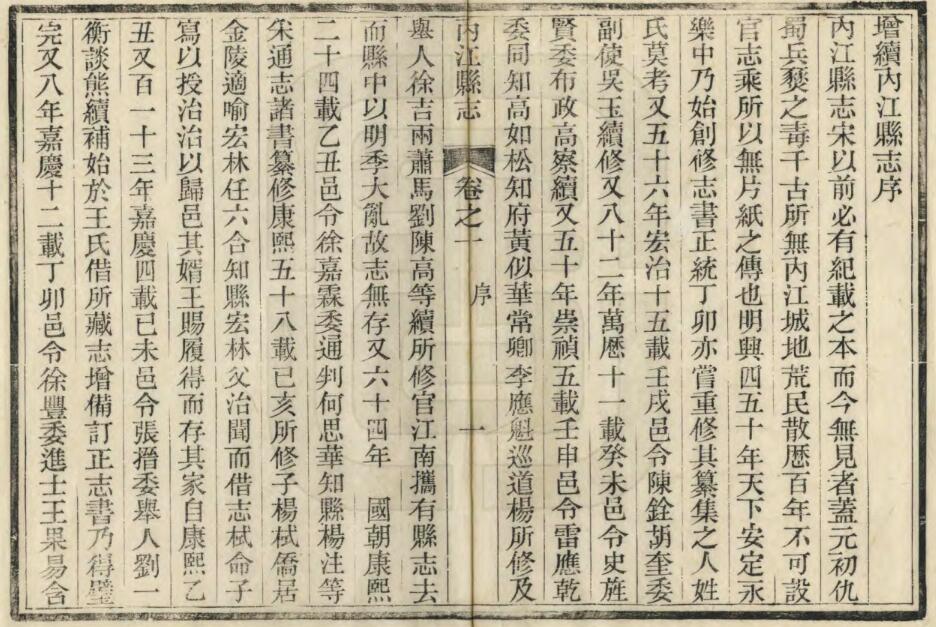 增續內江縣志序
內江縣志宋以前必有紀載之本而今無見者蓋元初仇
蜀兵燹之毒千古所無內江城地荒民散歴百年不可設
官志乘所以無片紙之傳也明興四五十年天下安定永
樂中乃始創修志書正統丁卯亦嘗重修其纂集之人姓
氏莫考又五十六年宏治十五載壬戌邑令陳銓胡奎委
副使吳玉續修又八十二年萬歴十一載癸未邑令史旌
賢委布政高察續又五十年崇禎五載壬申邑令雷應乾
委同知高如松知府黃似華常卿李應魁巡道楊所修及
內江縣志 卷之一 序 一
舉人徐吉兩蕭馬劉陳高等續所修官江南攜有縣志去
而縣中以明季大亂故志無存又六十四年 國朝康熙
二十四載乙丑邑令徐嘉霖委通判何思華知縣楊注等
宋通志諸書纂修康熙五十八載己亥所修子楊栻僑居
金陵適喻宏林任六合知縣宏林父治聞而借志栻命子
寫以授治治以歸邑其婿王賜履得而存其家自康熙乙
丑又百一十三年嘉慶四載已未邑令張搢委舉人劉一
衡談熊續補始於王氏借所藏志增備訂正志書乃得璧
完又八年嘉慶十二載丁卯邑令徐豐委進士王果易含